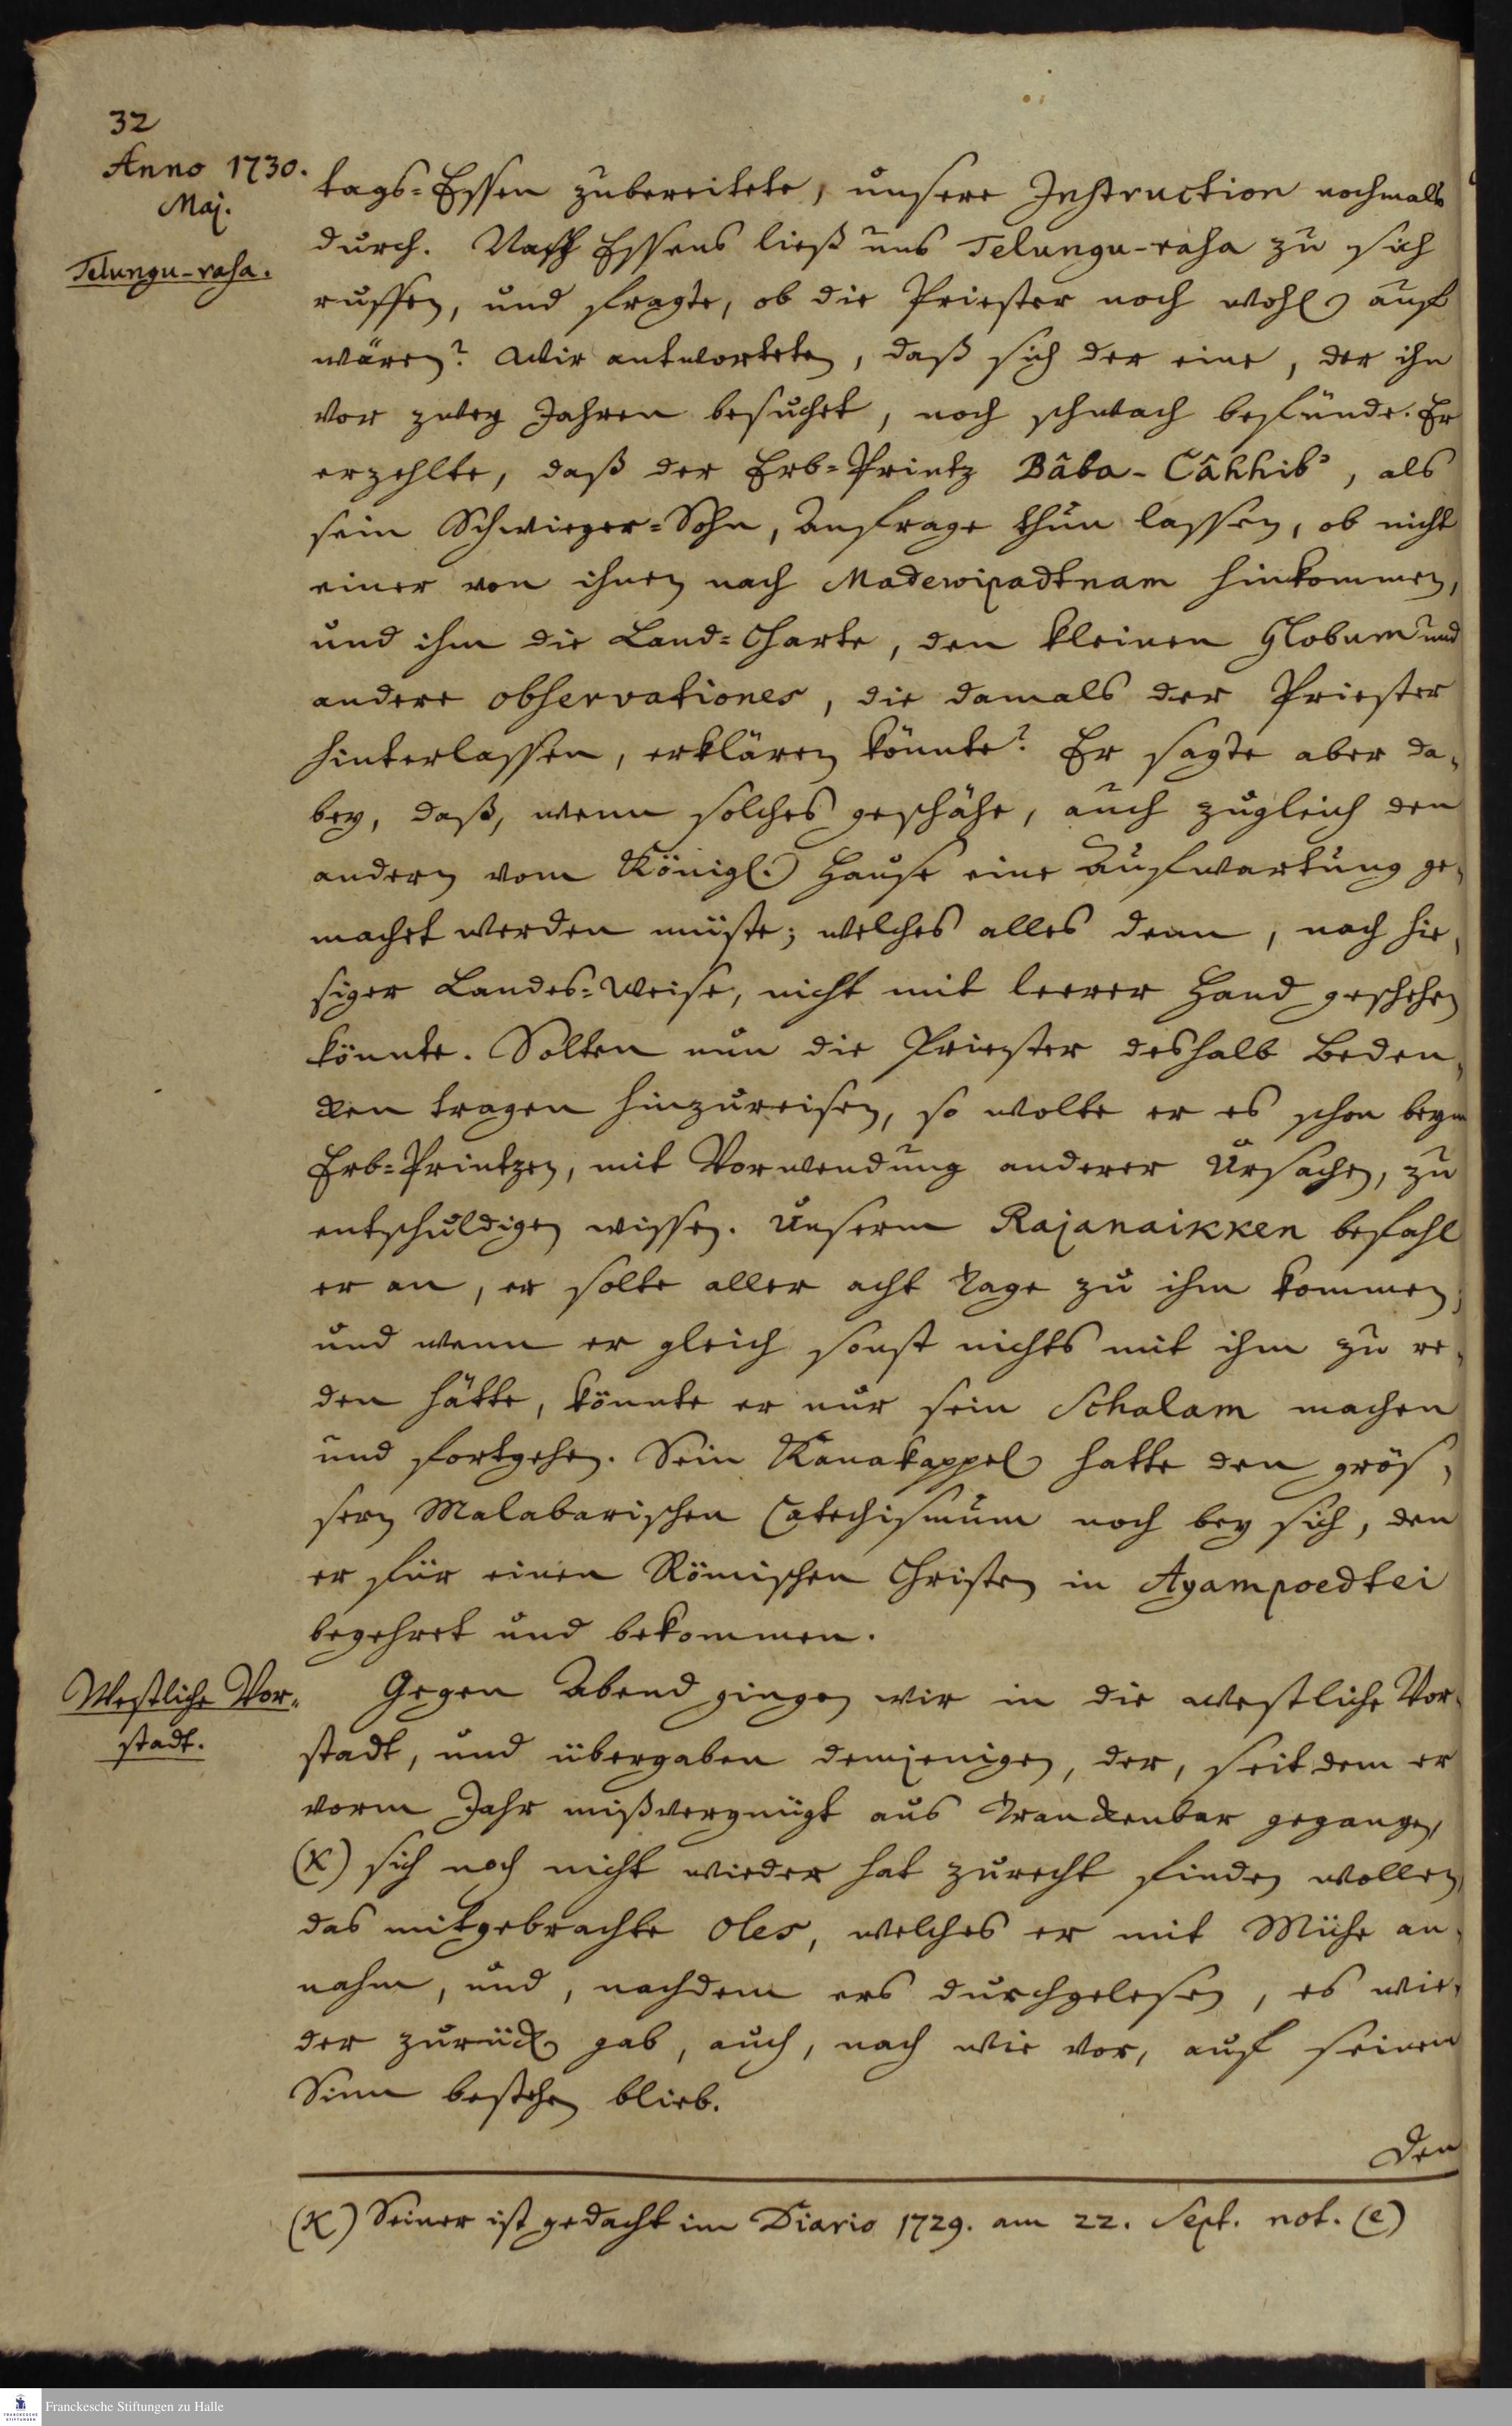 32
Anno 1730.
Maj.
Telungu-rasa.
tags-Essen zubereitete, unsere Instruction nochmals
durch. Nach Essens ließ uns Telungu-rasa zu sich
ruffen, und fragte, ob die Priester noch wohl auf
wären? Wir antworteten, daß sich der eine, der ihn
vor zwey Jahren besuchet, noch schwach befünde. Er
erzehlte, daß der Erb-Printz Bâba-Câhhib, als
sein Schwieger-Sohn, Anfrage thun lassen, ob nicht
einer von ihnen nach Madewipadtnam hinkommen,
und ihm die Land-Charte, den kleinen Globum und
andere observationes, die damals der Priester
hinterlassen, erklären könnte? Er sagte aber da-
bey, daß, wenn solches geschähe, auch zugleich den
andern vom Königl. Hause eine Aufwartung ge-
machet werden müste; welches alles denn, nach hie-
siger Landes-Weise, nicht mit leerer Hand geschehen
könnte. Solten nun die Priester deshalb Beden-
cken tragen hinzureisen, so wolte er es schon beym
Erb-Printzen, mit Vorwendung anderer Ursachen, zu
entschuldigen wissen. Unserm Rajanaikken befahl
er an, er solte aller acht Tage zu ihm kommen;
und wenn er gleich sonst nichts mit ihm zu re-
den hätte, könnte er nur sein Schalam machen
und fortgehen. Sein Kanakappel hatte den grös-
sern Malabarischen Catechismum noch bey sich, den
er für einen Römischen Christen in Ayampoedtei
begehret und bekommen.
Westliche Vor-
stadt.
Gegen Abend gingen wir in die westliche Vor-
stadt, und übergaben demjenigen, der, seit dem er
vorm Jahr mißvergnügt aus Tranckenbar gegangen,
(x) sich noch nicht wieder hat zurecht finden wollen,
das mitgebrachte Oles, welches er mit Mühe an-
nahm, und, nachdem ers durchgelesen, es wie-
der zurück gab, auch, nach wie vor, auf seinem
Sinn bestehen blieb.
Den
(x) Seiner ist gedacht im Diario 1729. am 22. Sept. not. (e)
Franckesche Stiftungen zu Halle